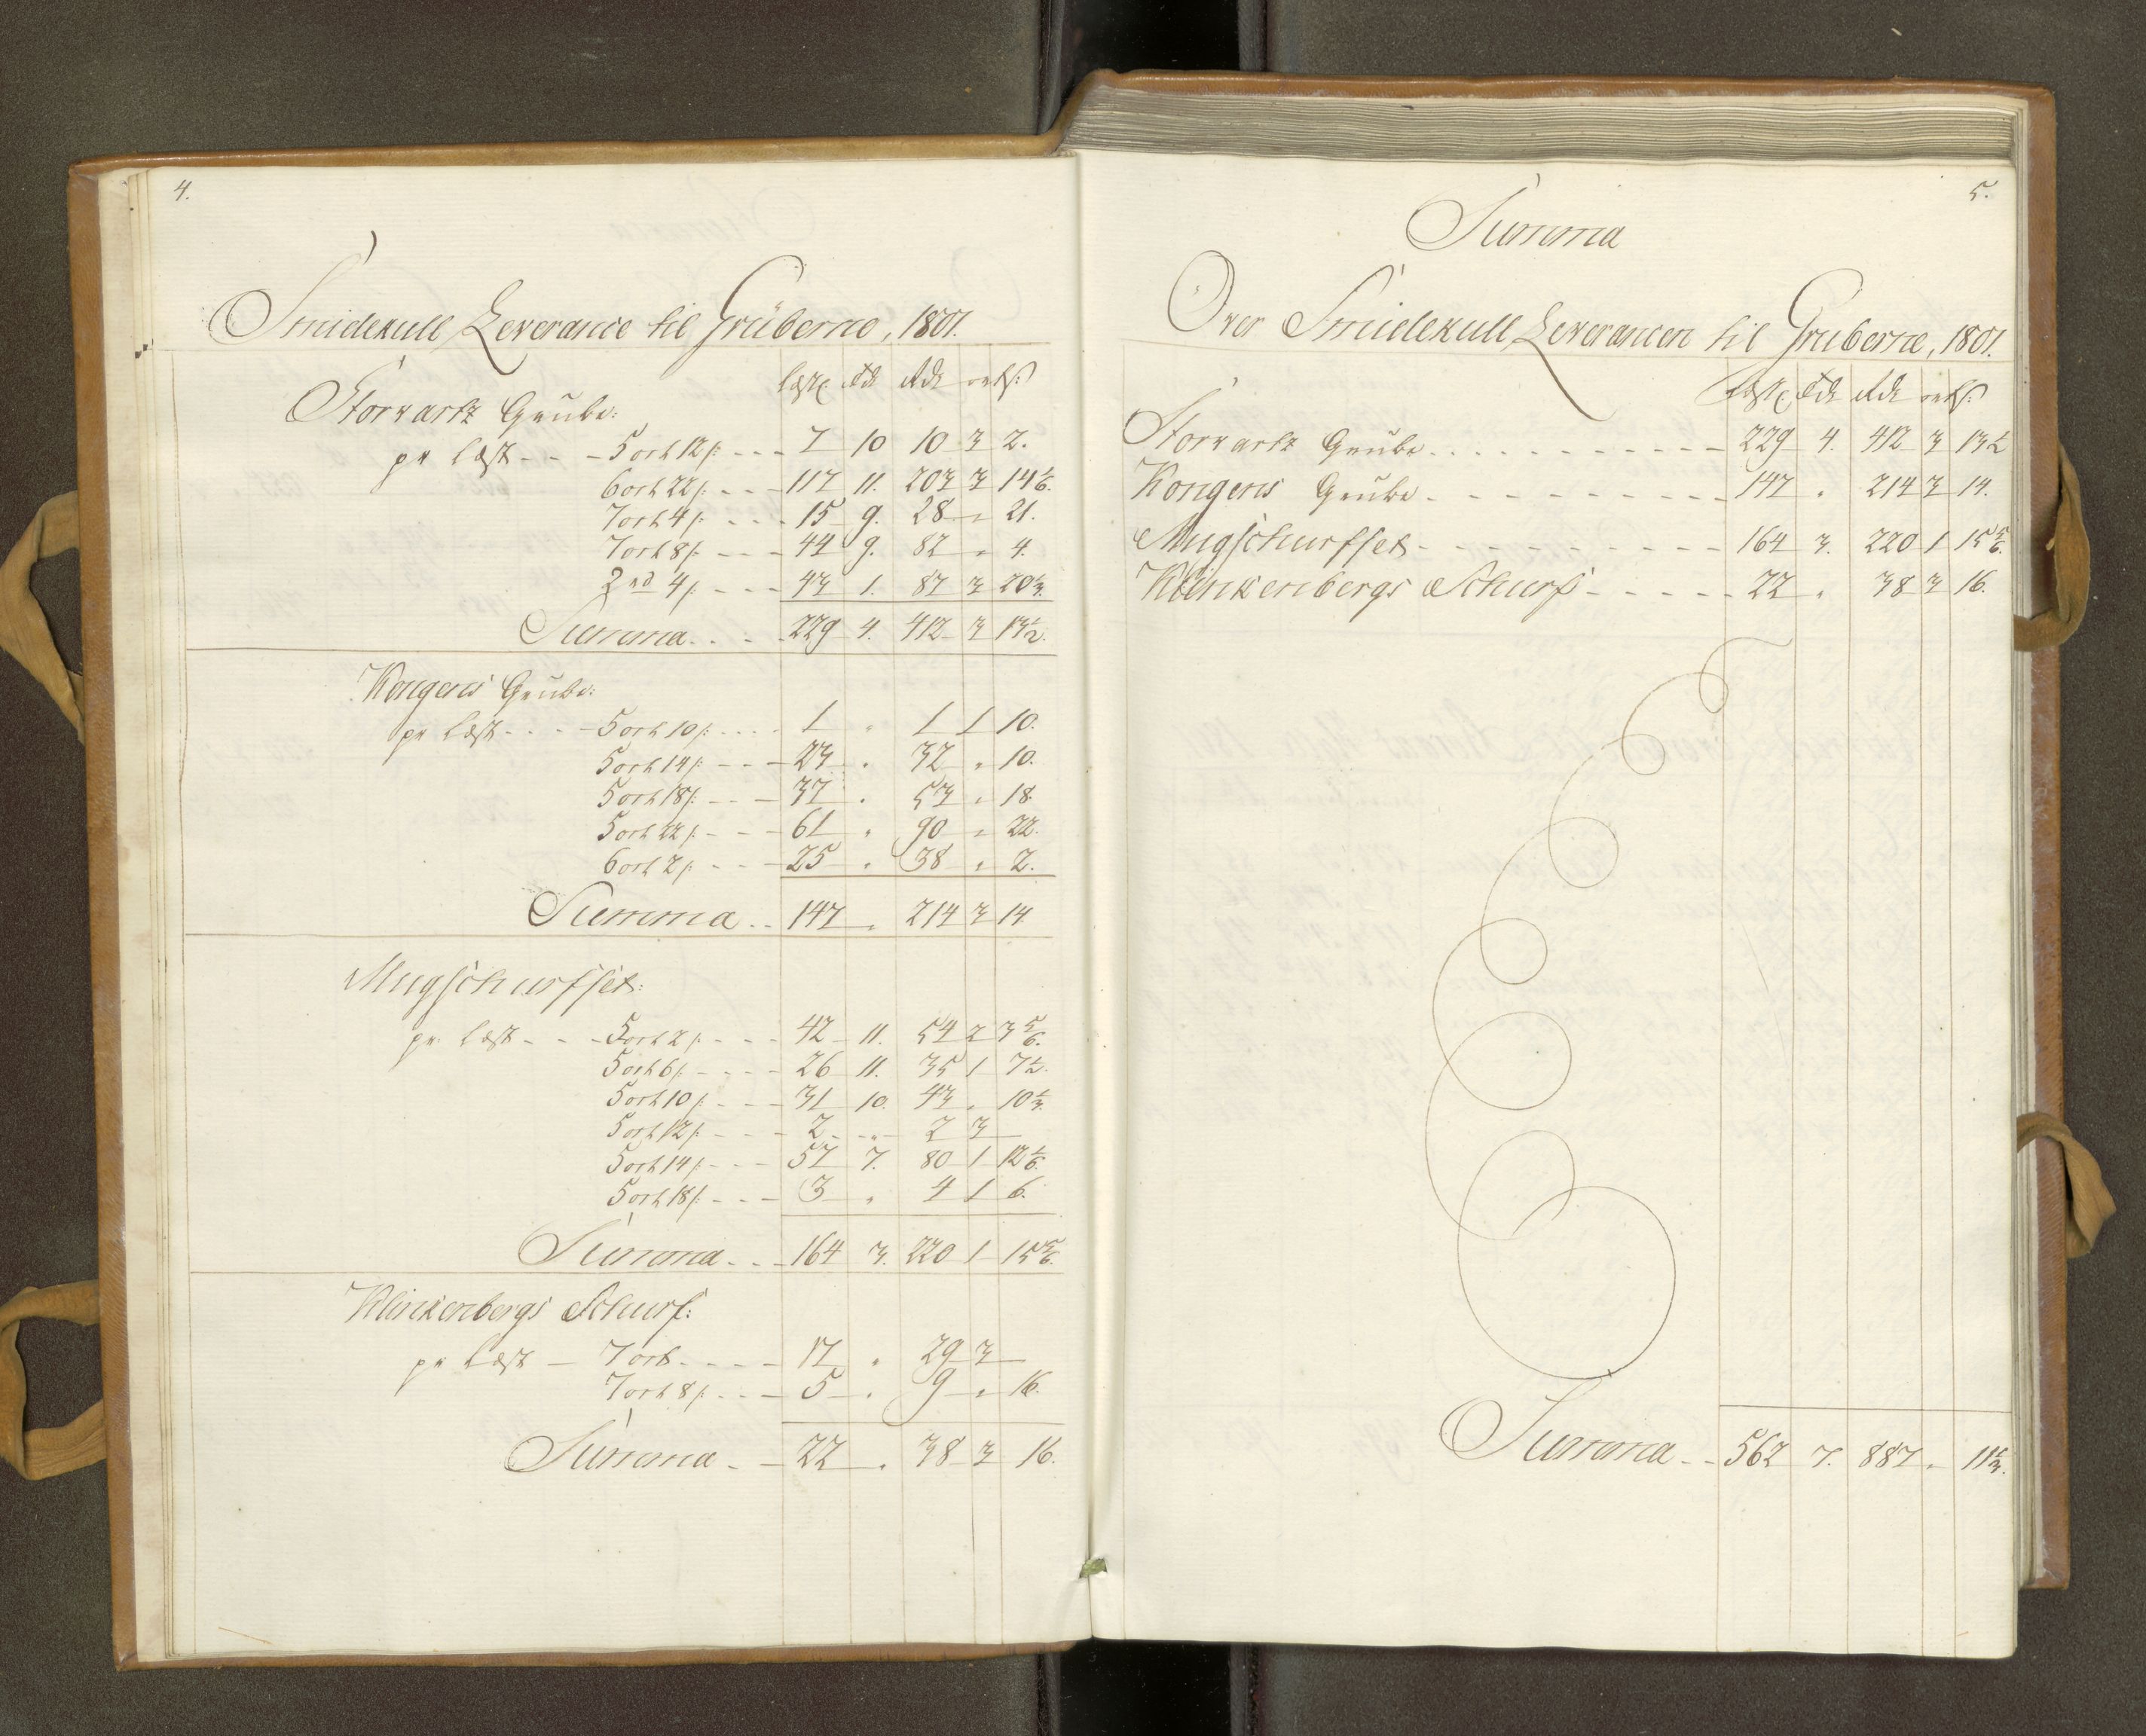 4.
Smidekull Leverance til Gruberne, 1801.
Læst. Td. Rdr. ort ß.
Storvartz Grube:
pr. Læst - - - 5 ort 12 ß. - - - 7 10 10 3 2.
6 ort 22 ß. - - - 117 11. 203 3 14 1/6.
7 ort 4 ß. - - - 15 9. 28 " 21.
7 ort 8 ß. - - - 44 9. 82 " 4.
2 rd 4 ß. - - - 43 1. 87 3 20 1/3.
Summa - - - 229 4. 412 3 13 1/2.
Kongens Grube:
pr. Læst - - - 5 ort 10 ß. - - - 1 " 1 1 10.
5 ort 14 ß. - - - 23 " 32 " 10.
5 ort 18 ß. - - - 37 " 53 " 18.
5 ort 22 ß. - - - 61 " 90 " 22.
6 ort 2 ß. - - - 25 " 38 " 2.
Summa - - 147 " 214 3 14
Mugschurfset:
pr. Læst - - - 5 ort 2 ß. - - - 42 11. 54 2 3 5/6.
5 ort 6 ß. - - - 26 11. 35 1 7 1/2.
5 ort 10 ß. - - - 31 10. 43 " 10 1/3.
5 ort 12 ß. - - - 2 " 2 3
5 ort 14 ß. - - - 57 7. 80 1 12 1/6.
5 ort 18 ß. - - - 3 " 4 1 6.
Summa - - - 164 3. 220 1 15 5/6.
Klinkenbergs Schurf:
pr. Læst - 7 ort - - - - 17 " 29 3
7 ort 8 ß. - - - 5 " 9 " 16.
Summa - - 22 " 38 3 16.
5.
Summa
Over Smidekull Leverancen til Gruberne, 1801.
Læst. Td. Rdr. ort ß.
Storvartz Grube - - - 229 4. 412 3 13 1/2
Kongens Grube - - - 147 " 214 3 14.
Mugschurfset - - - 164 3. 220 1 15 5/6.
Klinkenbergs Schurf - - - 22 " 38 3 16.
Summa - - 562 7. 887 " 11 1/3.